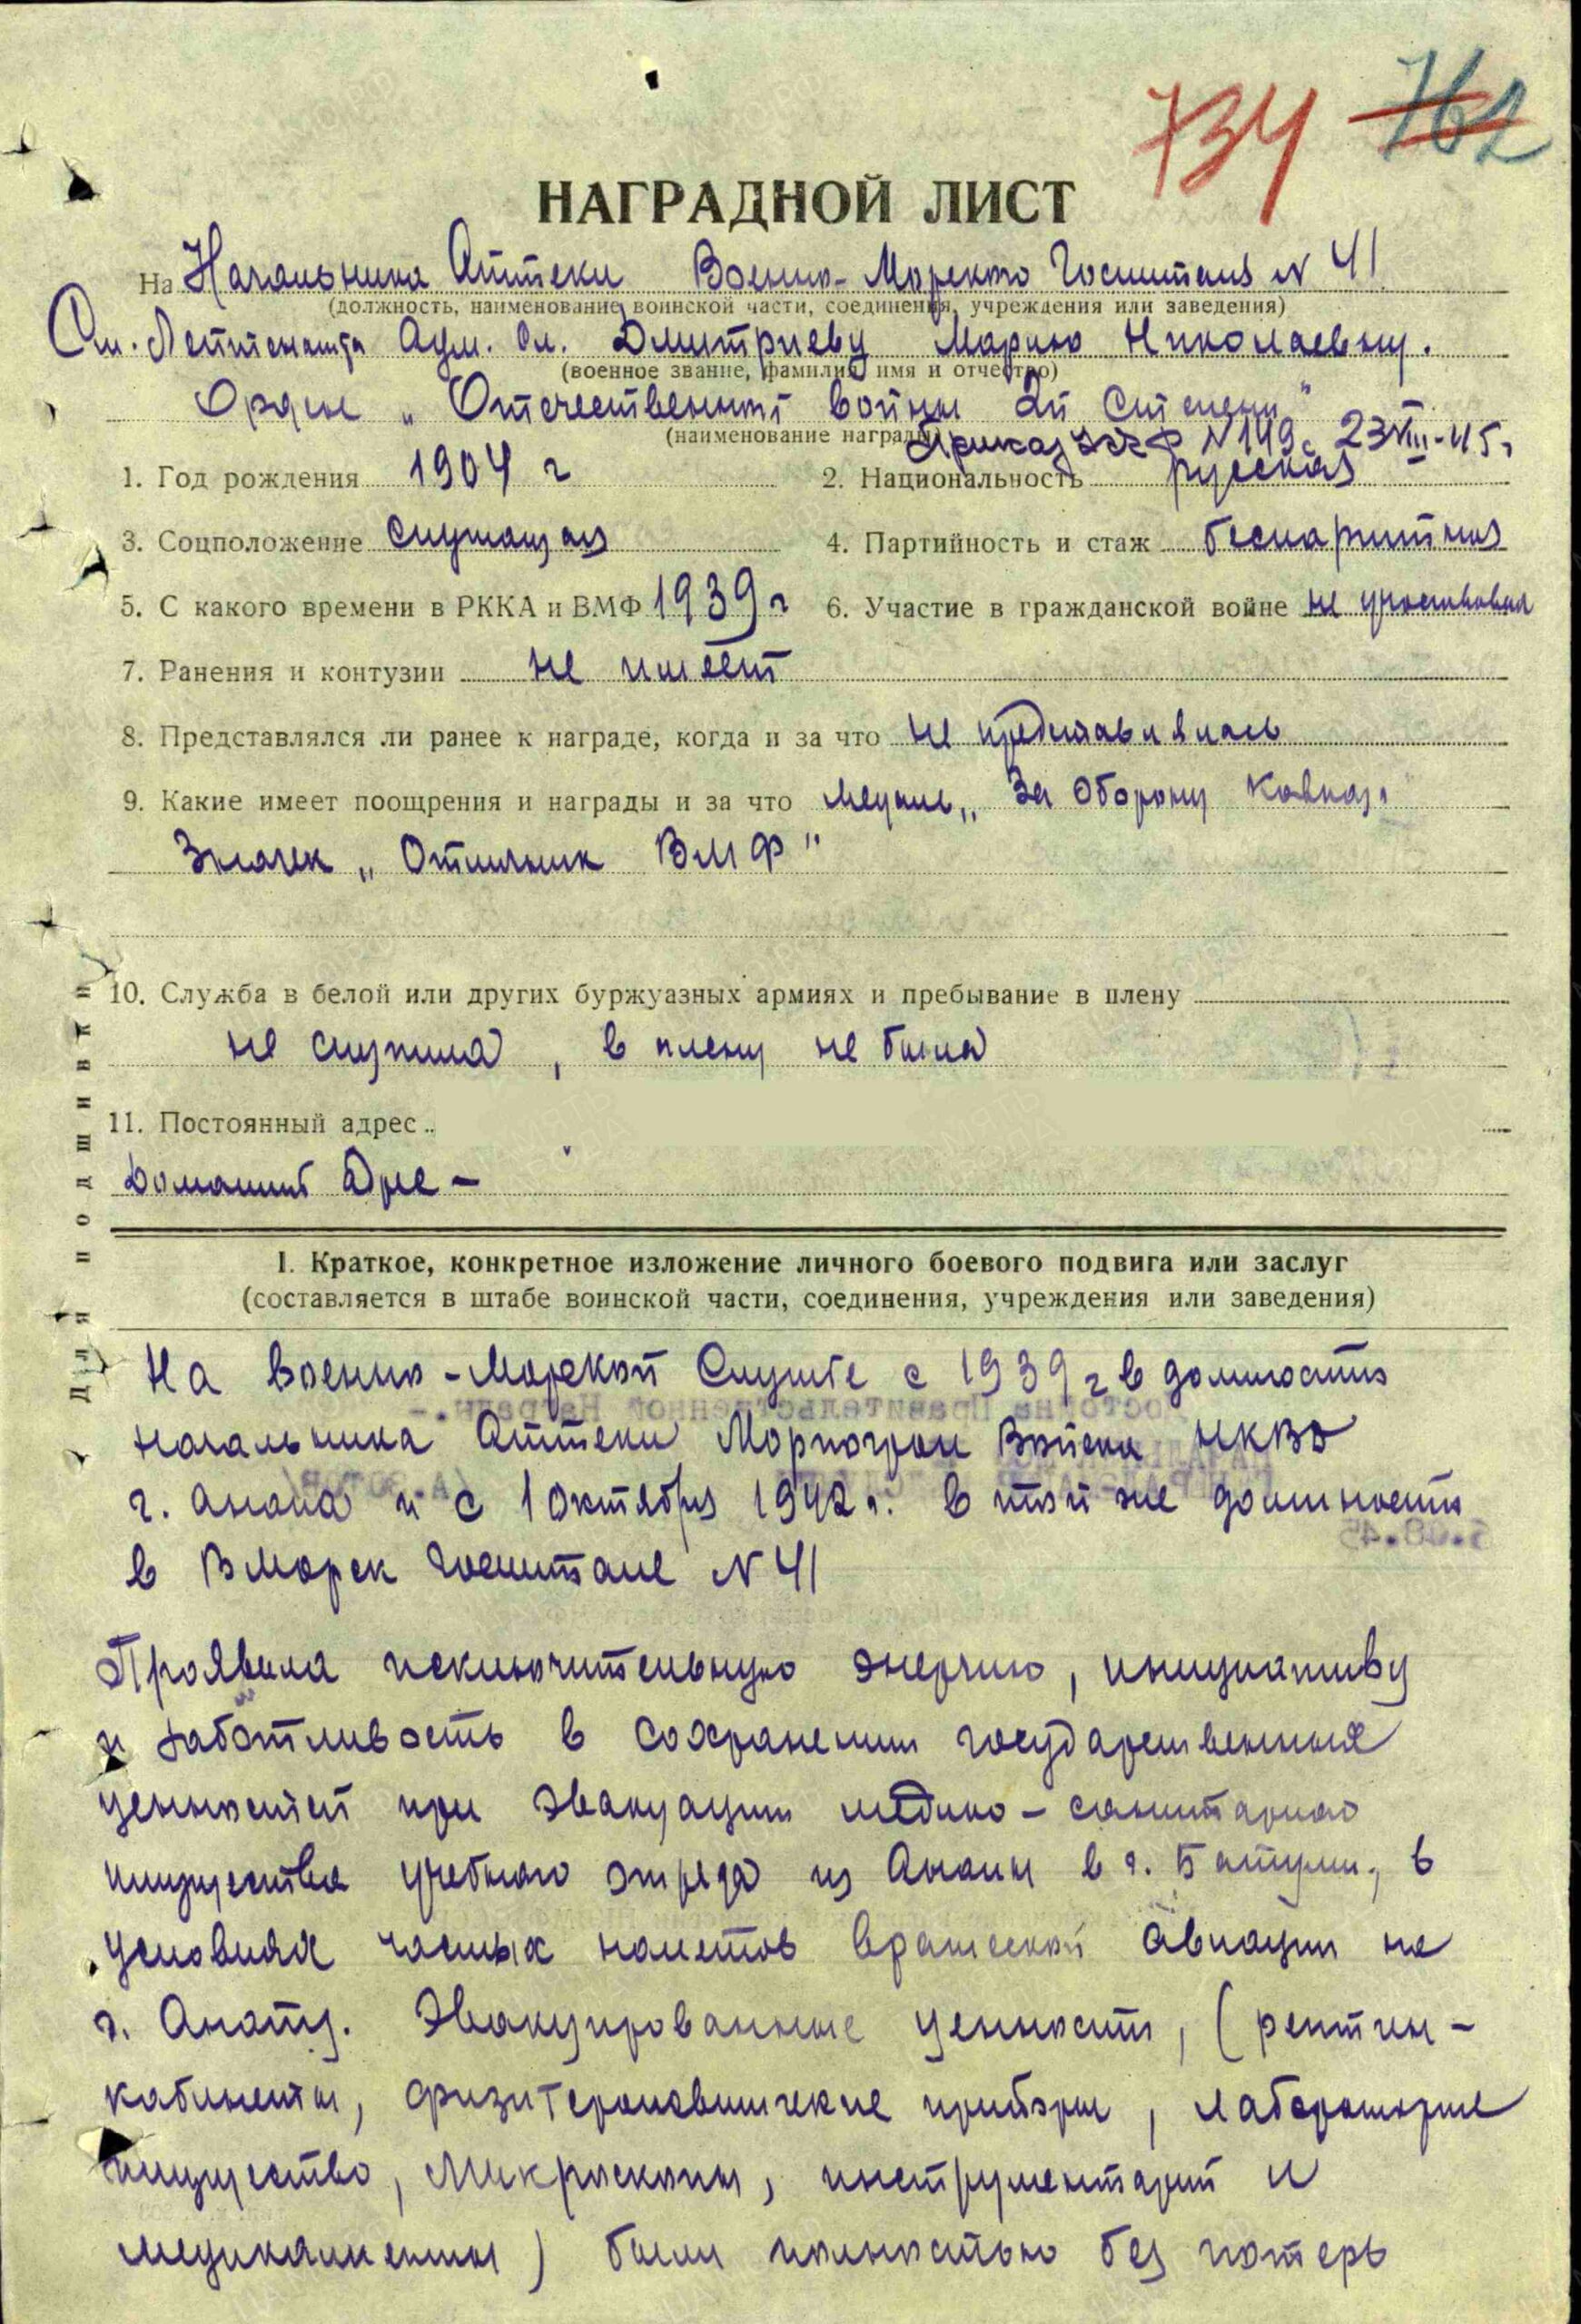 734 762
НАГРАДНОЙ ЛИСТ
На Начальника Аптеки Военно-Морского Госпиталя N 41
(должность, наименование воинской части, соединения, учреждения или заведения)
Ст. Лейтенанта Адм. Сл. Дмитриеву Марию Николаевну.
(военное звание, фамилия, имя и отчество)
Орден „Отечественной войны 2й Степени"
(наименование награды) Приказ N 149 с 23/VIII-45г
1. Год рождения 1904 г 2. Национальность русская
3. Соцположение служащая 4. Партийность и стаж беспартийная
5. С какого времени в РККА и ВМФ 1939 г 6. Участие в гражданской войне не участвовал
7. Ранения и контузии не имеет
8. Представлялся ли ранее к награде, когда и за что не представлялась
9. Какие имеет поощрения и награды и за что медаль „За Оборону Кавказ"
Значек „Отличник ВМФ"
10. Служба в белой или других буржуазных армиях и пребывание в плену
не служила, в плену не была
11. Постоянный адрес
Домашний Адре -
Для подшивки
I. Краткое, конкретное изложение личного боевого подвига или заслуг
(составляется в штабе воинской части, соединения, учреждения или заведения)
На Военно-Морской Службе с 1939 г в должности
Начальника Аптеки Морпогран Войска НКВД
г. Анапа и с 1 Октября 1942 г. в той же должности
в ВМорск Госпитале N 41
Проявила исключительную энергию, инициативу
и заботливость в сохранении государственных
ценностей при эвакуации медико-санитарного
имущества учебного отряда из Анапы в г. Батуми, в
условиях частых налетов вражеской авиации на
г. Анапу. Эвакуированные ценности, (рентген-
кабинеты, физитерапевтические приборы, лабораторные
имущество, микроскопы, инструментарий и
медикаменты) были полностью без потерь